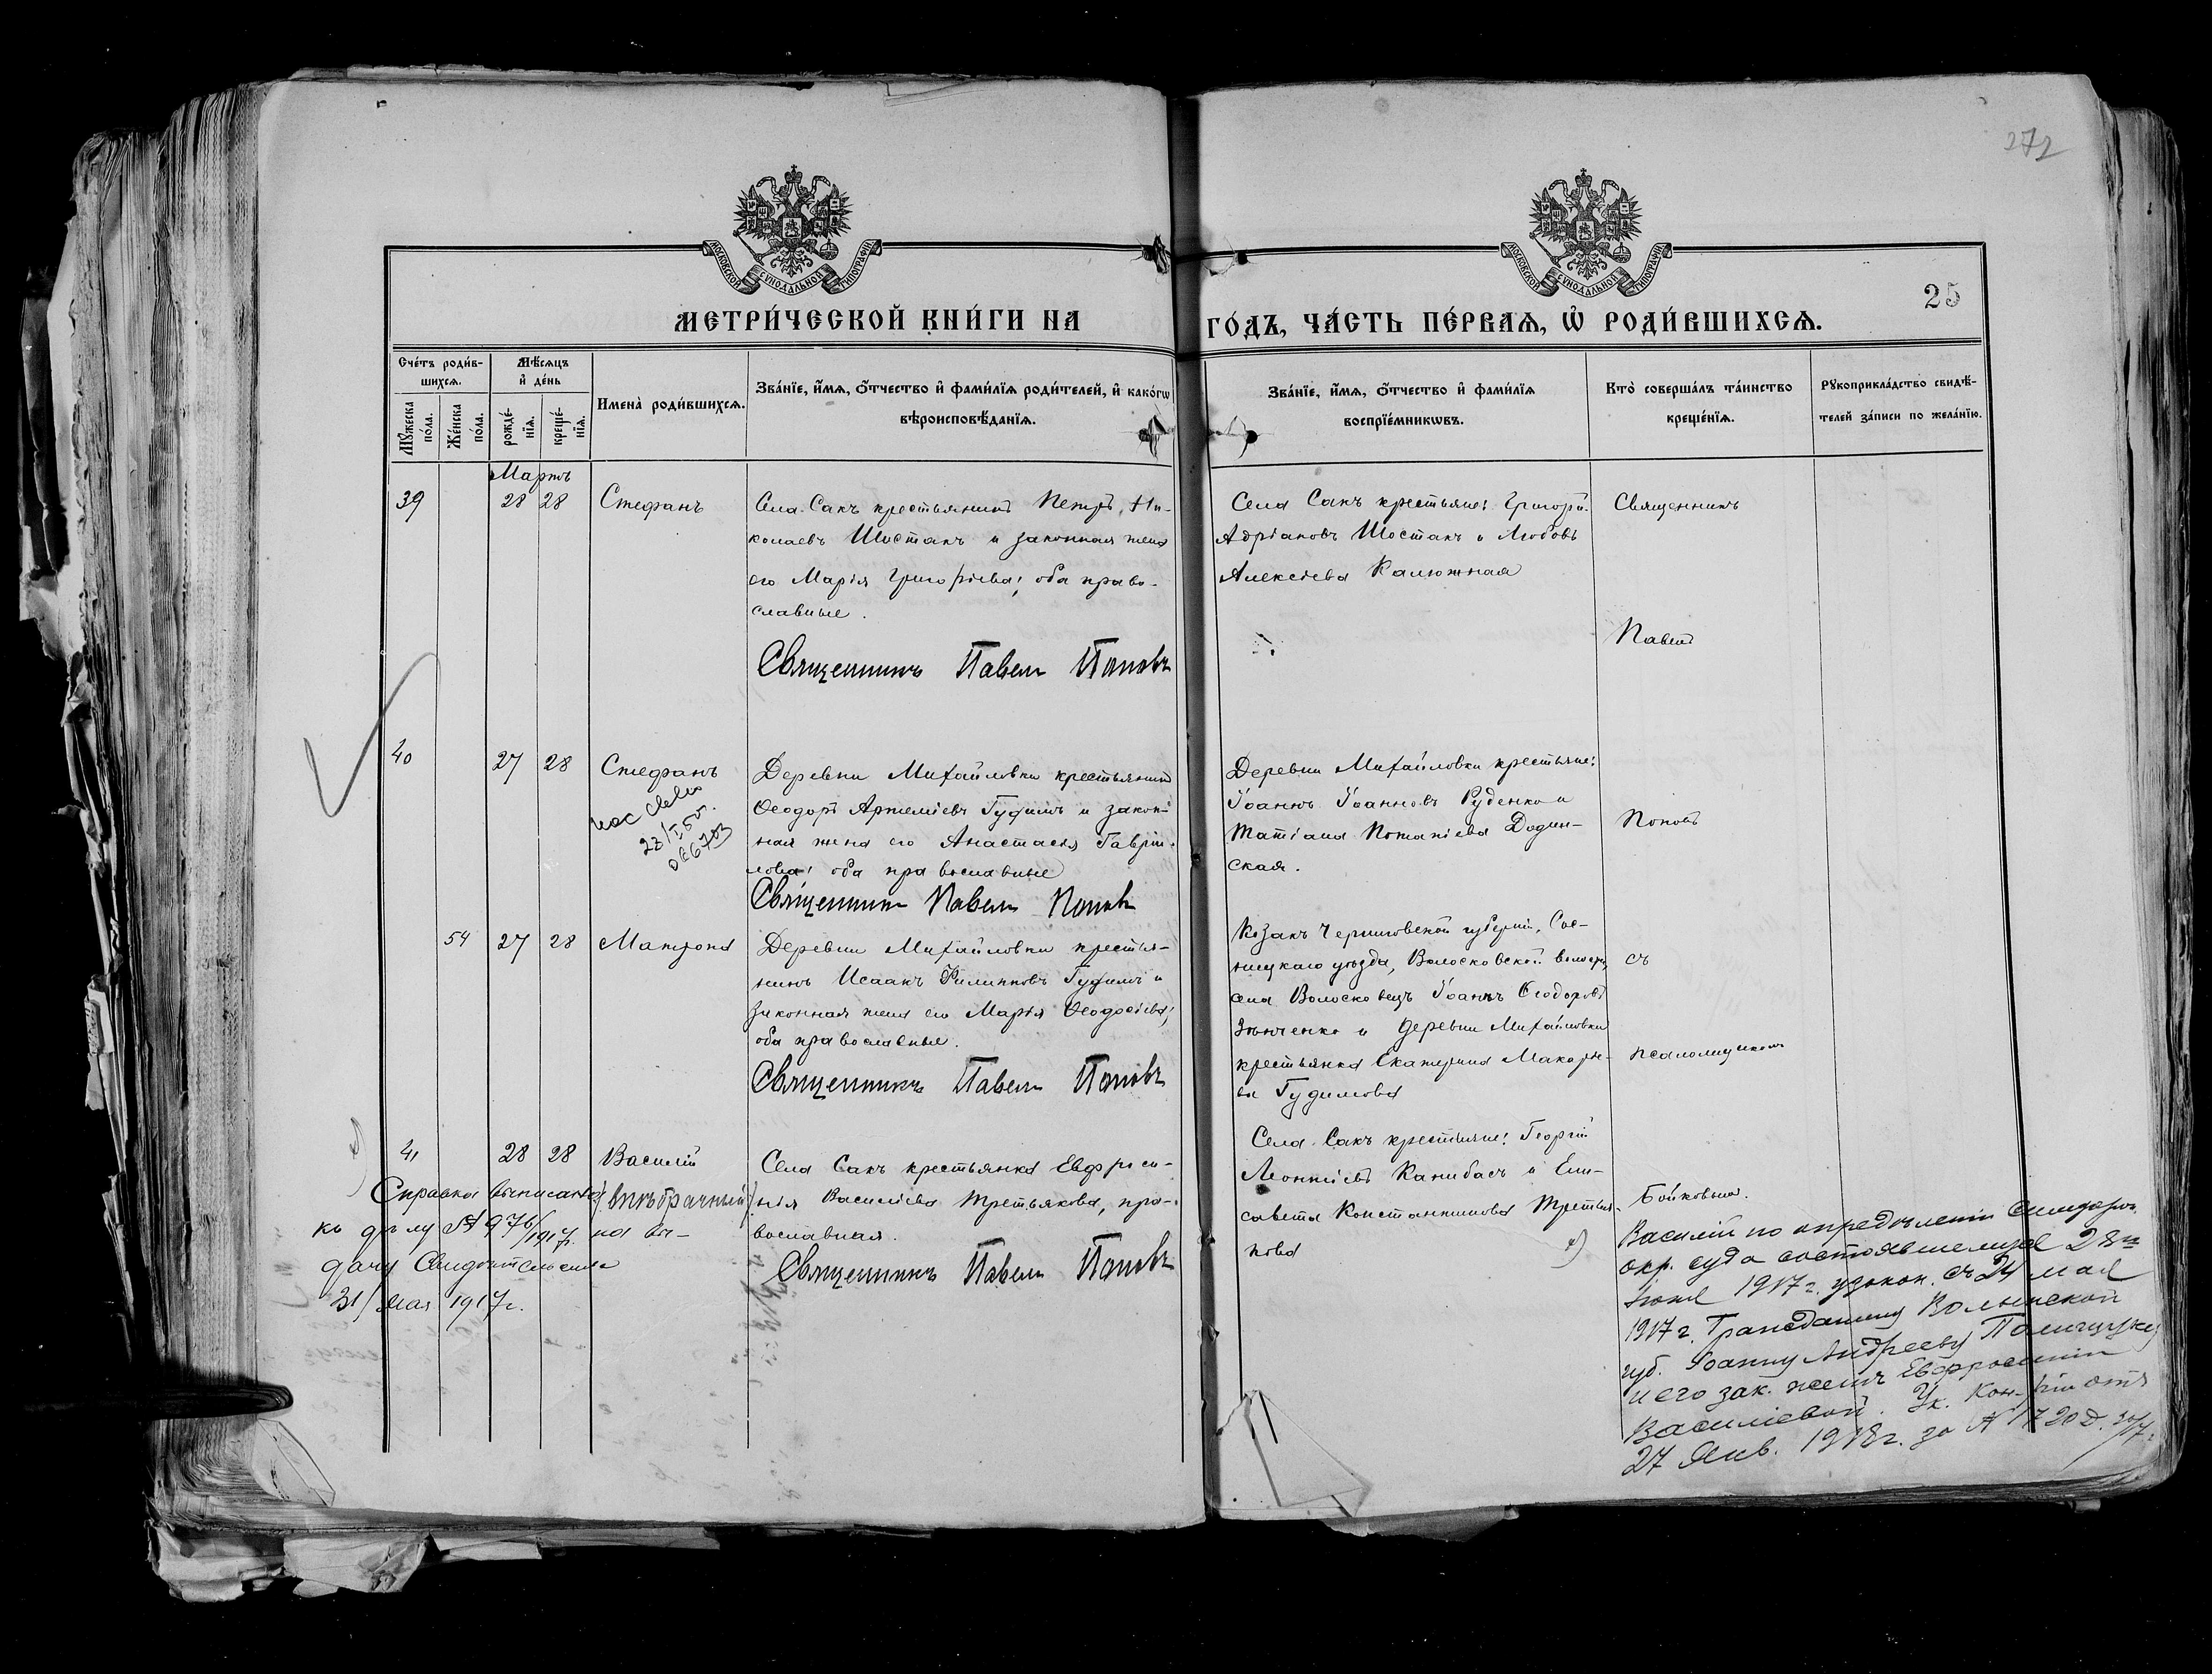 272
МОСКОВСКОЙ СѴНОДАЛЬНОЙ ТИПОГРАФІИ
МОСКОВСКОЙ СѴНОДАЛЬНОЙ ТИПОГРАФІИ
25
МЕТРИ́ЧЕСКОЙ КНИ́ГИ НА
ГО́ДЪ, ЧА́СТЬ ПЕ́РВАѦ, Ѽ РОДИ́ВШИХСѦ.
Сче́тъ роди́в-
шихсѧ.
Мѣ́сѧцъ
и҆ де́нь
Мꙋ́жеска
по́ла.
Же́нска
по́ла.
рожде́-
нїѧ.
креще́-
нїѧ.
Имена̀ роди́вшихсѧ.
Зва́нїе, и҆́мѧ, ѻ҆́тчество и҆ фами́лїѧ роди́телей, и҆ како́гѡ
вѣроисповѣ́данїѧ.
Зва́нїе, и҆́мѧ, ѻ҆́тчество и҆ фами́лїѧ
воспрїе́мникѡвъ.
Кто̀ соверша́лъ та́инство
креще́нїѧ.
Рꙋкоприкла́дство свидѣ́-
телей за́писи по жела́нїю.
Мартъ
39 28 28 Стефанъ
Села Сакъ крестьянинъ Петръ Ни-
колаевъ Шостакъ и законная жена
его Марія Григоріева; оба право-
славные.
Священникъ Павелъ Поповъ
Села Сакъ крестьяне: Григорій
Адріановъ Шостакъ и Любовь
Алексіева Калюжная
Священникъ
Павелъ
40 27 28 Стефанъ
28/I 50г.
Деревни Михайловки крестьянинъ
Ѳеодоръ Артеміевъ Гудимъ и закон-
ная жена его Анастасія Гаврии-
лова; оба православные
Священникъ Павелъ Поповъ
Деревни Михайловки крестьяне:
Іоаннъ Іоанновъ Руденко и
Татіана Потапіева Додин-
ская.
Поповъ
54 27 28 Матрона
Деревни Михайловки крестья-
нинъ Исаакъ Филипповъ Гудимъ и
законная жена его Марія Ѳеодосіева;
оба православные.
Священникъ Павелъ Поповъ
Козакъ Черниговской губерніи, Сос-
ницкаго уѣзда, Волосковской волости,
села Волосковецъ Іоаннъ Ѳеодоровъ
Зѣнченко и деревни Михайловки
крестьянка Екатерина Макарье-
ва Гудимова
съ
псаломщикомъ
41 28 28 Василій
(внѣбрачный)
Села Сакъ крестьянка Евфроси-
нія Василіева Третьякова, пра-
вославная.
Священникъ Павелъ Поповъ
Села Сакъ крестьяне: Георгій
Леонтіевъ Канибасъ и Ели-
савета Константинова Третья-
кова
Бойковымъ.
Справка выписана
къ дѣлу № 976/1917г. на вы-
дачу Свидѣтельства
31/мая 1917г.
х) Василій по опредѣленію Симфероп.
окр. суда состоявшемуся 28го
іюня 1917г. узакон. съ 24 мая
1917г. Гражданину Волынской
губ. Іоанну Андрееву Полищуку
и его зак. женѣ Евфросиніи
Василіевой. Ук. Кон-ріи отъ
27 Янв. 1918г. за № 1720